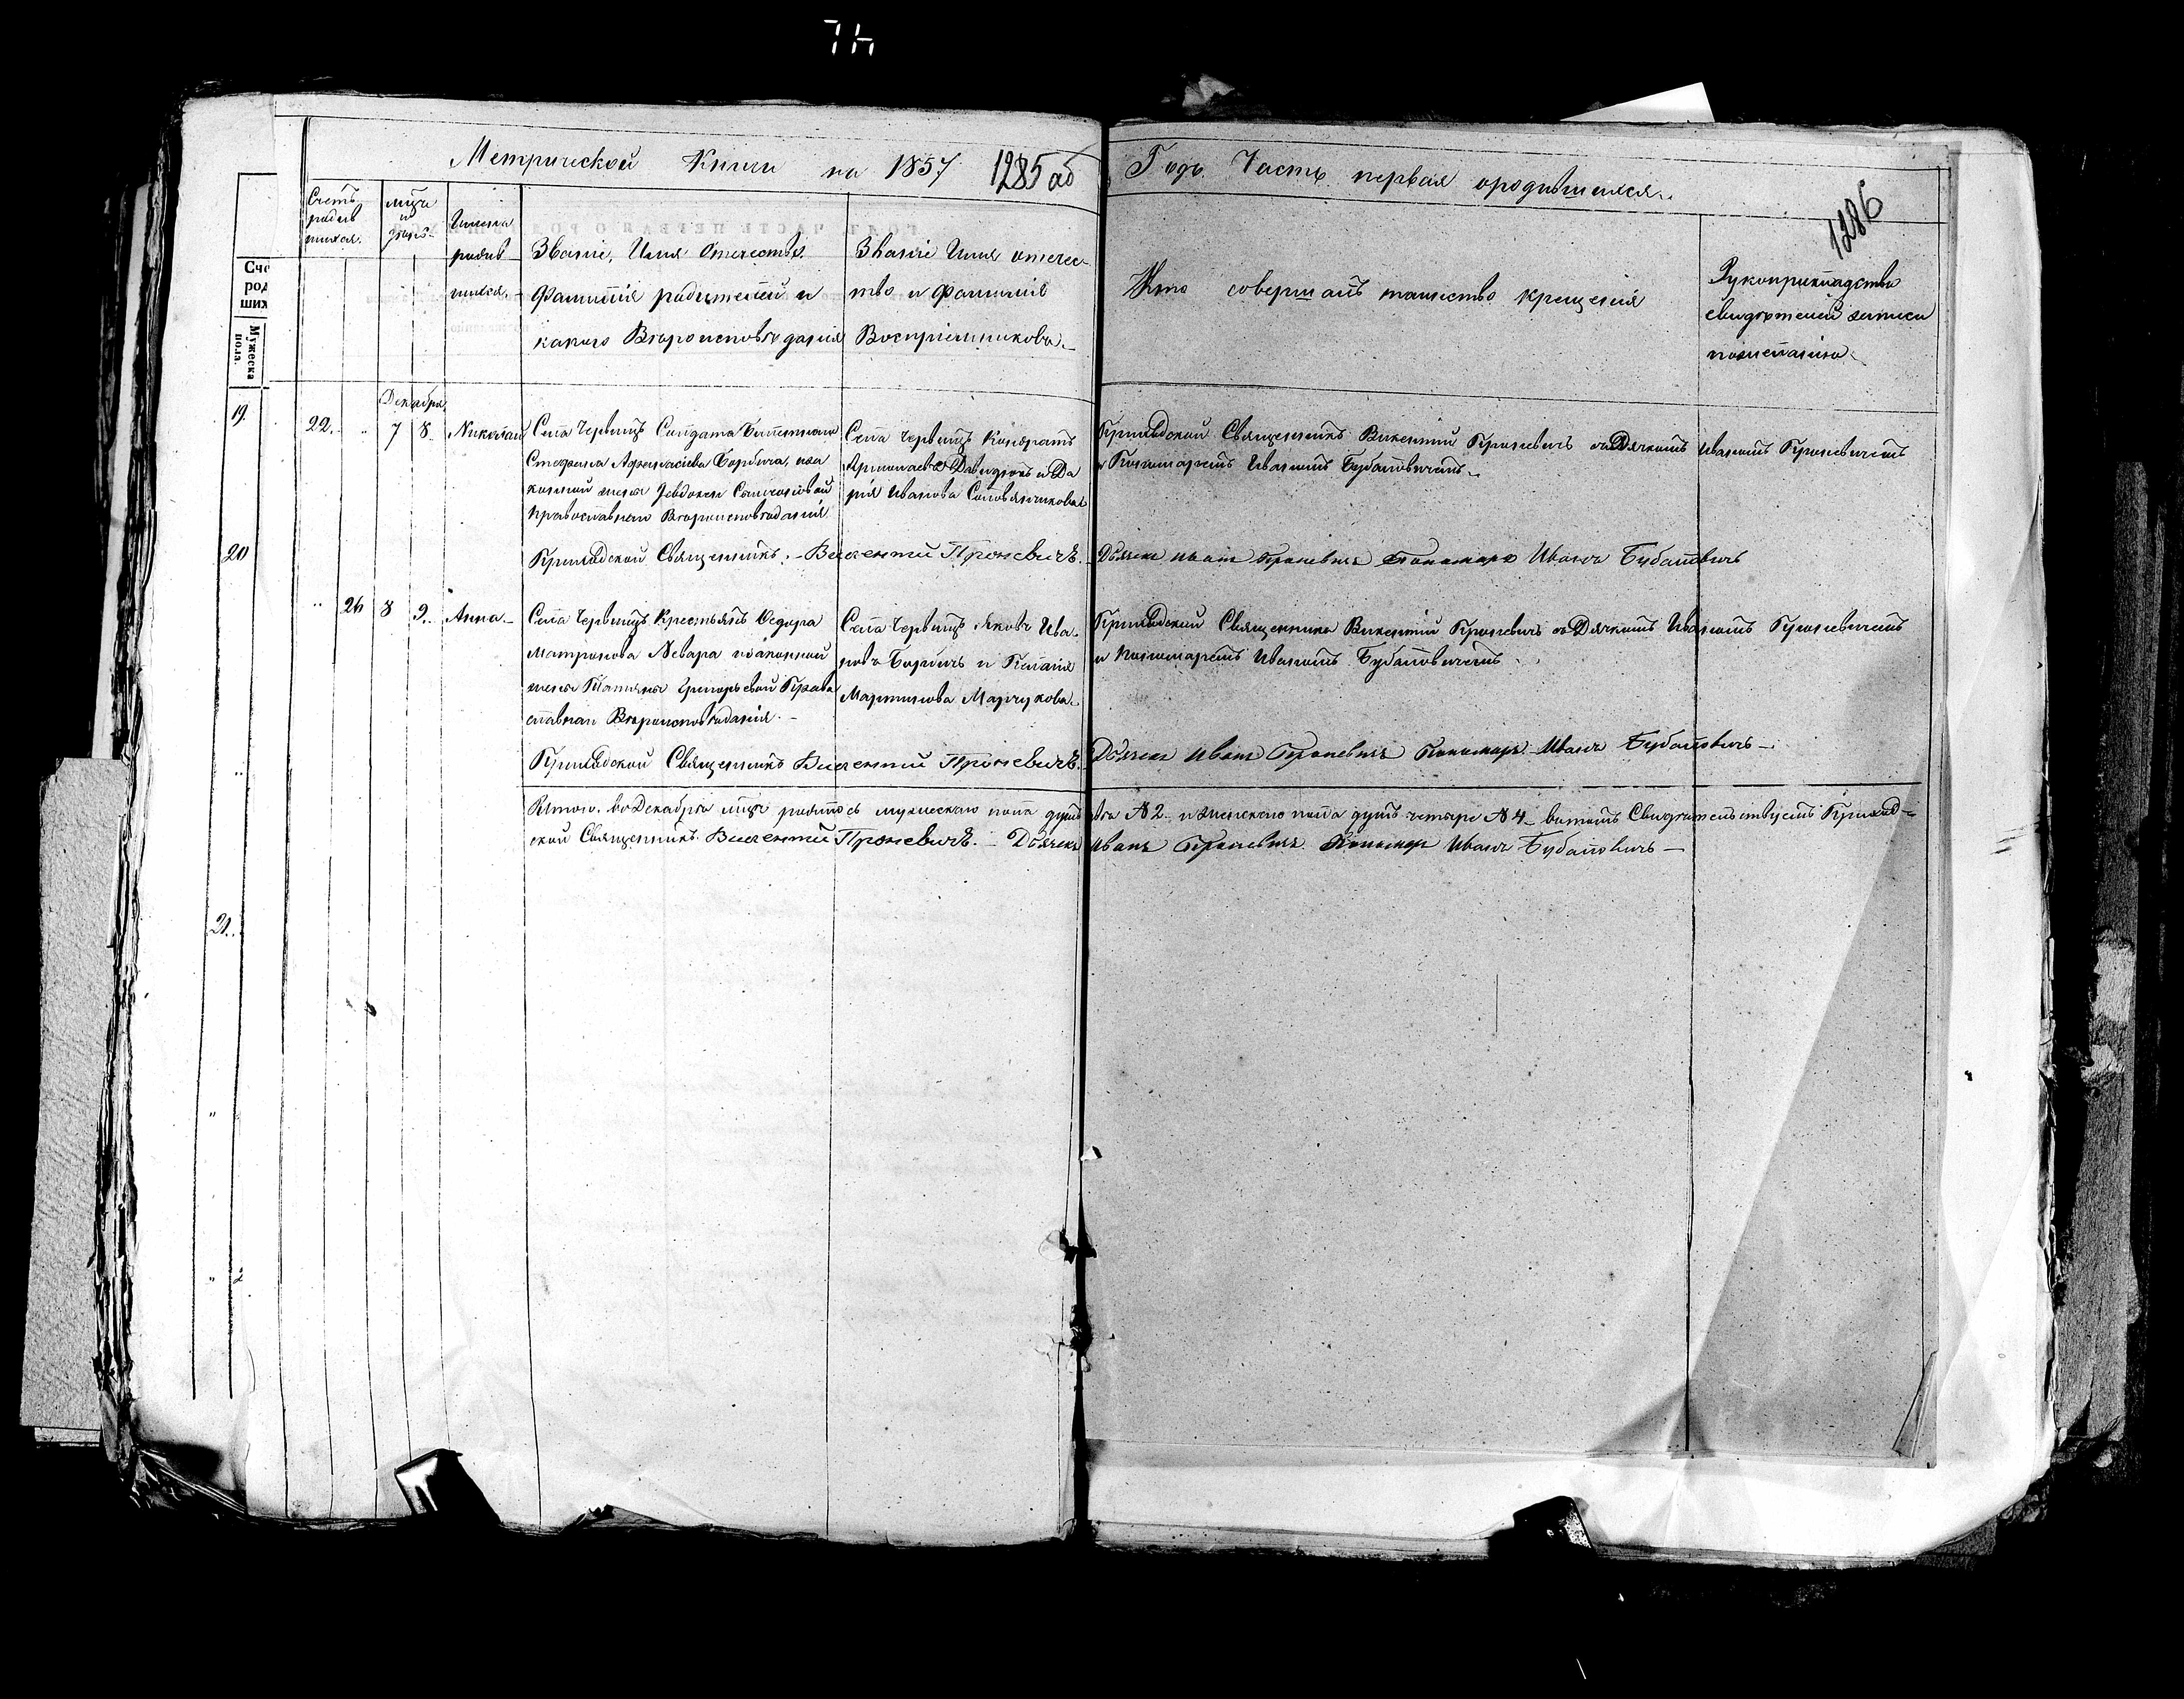 Метрической Книги на 1857 1285 об
Годъ Часть первая о родившихся.
1286
Счетъ родив шихся.
мѣсц и день
Имена родив шихся.
Званіе, Имя Отчество.
Фамилія родителей и
какого Вѣроисповѣданія
Званіе Имя отчес
тво и Фамилія
Воспріемниковъ.
Кто совершалъ таинство крещенія
Рукоприкладство
свидѣтелей записи
по желанію.
Сче
род
ших
Мужеска
пола.
Декабря
19.
22. 7 8. Николай
Села Червищъ Солдата
Стефана Афанасіева Борбича, и за
конной жены Евдокіи Симеоновой
Православнаго Вѣроисповѣданія
Села Червищъ Кондратъ
Давидюкъ и Да
рія Иванова
Приходской Священникъ Викентій Проневичъ съ Дячкомъ Иваномъ Проневичемъ
и Пономаремъ Иваномъ Бубановичемъ.
20
Приходской Священникъ. Викентій Проневичъ.
Дьячекъ Иванъ Проневичъ Пономарь Иванъ Бубановичъ
" 26 8 9. Анна.
Села Червищъ Крестьянъ Ѳедора
Матронова Невара и законной
жены Татьяны Григорьевой Право
славнаго Вѣроисповѣданія.
Села Червищъ Яковъ Ива
новъ Борбичъ и
Мартинова Марчукова.
Приходской Священникъ Викентій Проневичъ съ Дячкомъ Иваномъ Проневичемъ
и Пономаремъ Иваномъ Бубановичемъ
Приходской Священникъ Викентій Проневичъ.
Дьячекъ Иванъ Проневичъ Пономарь Иванъ Бубановичъ
Итого. въ Декабрѣ мцѣ родилось мужескаго пола душъ два № 2. и женскаго пола душъ четыре № 4. въ томъ Свидѣтельствуетъ Приход
ской Священникъ. Викентій Проневичъ. Дьячекъ Иванъ Проневичъ Пономарь Иванъ Бубановичъ
21.